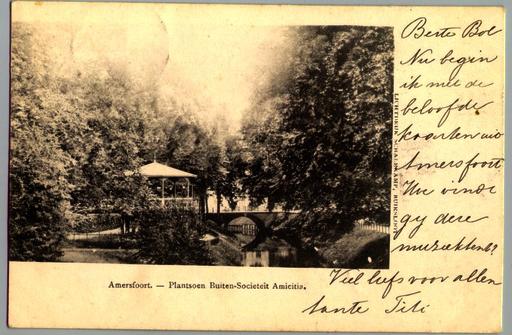 Beste Bol
Nu begin
ik met de
beloofde
kaarten uit
Amersfoort
Hu vindt
gy deze
muziektent?
Veel liefs voor allen
tante Titi
LICHTDRUK SCHALEKAMP, BUIKSLOOT.
Amersfoort. — Plantsoen Buiten-Societeit Amicitia.